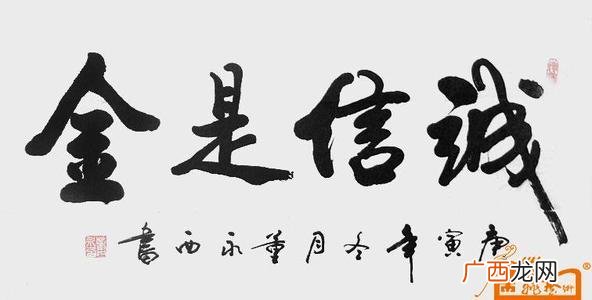 誠信是金
庚寅年冬月董永西書
广西龙网